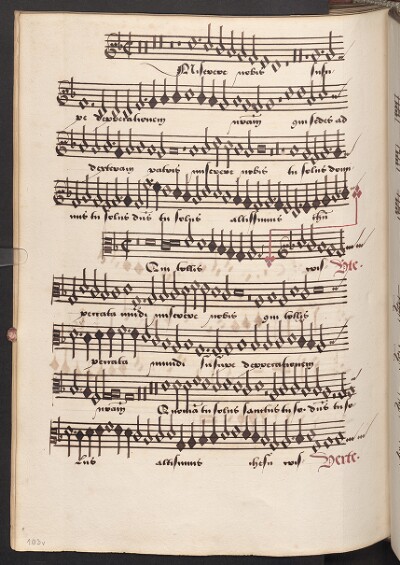 Miserere nobis susci
pe deprecationem nostram qui sedes ad
dexteram patris miserere nobis tu solus domi
nus tu solus dns tu solus altissimus
Qui tollis Vte.
peccata mundi miserere nobis qui tollis
peccata mundi suscipe deprecationem
nostram Quoniā tu solus sanctus tu so. dns tu so
lus altissimus ihesu Verte.
102v